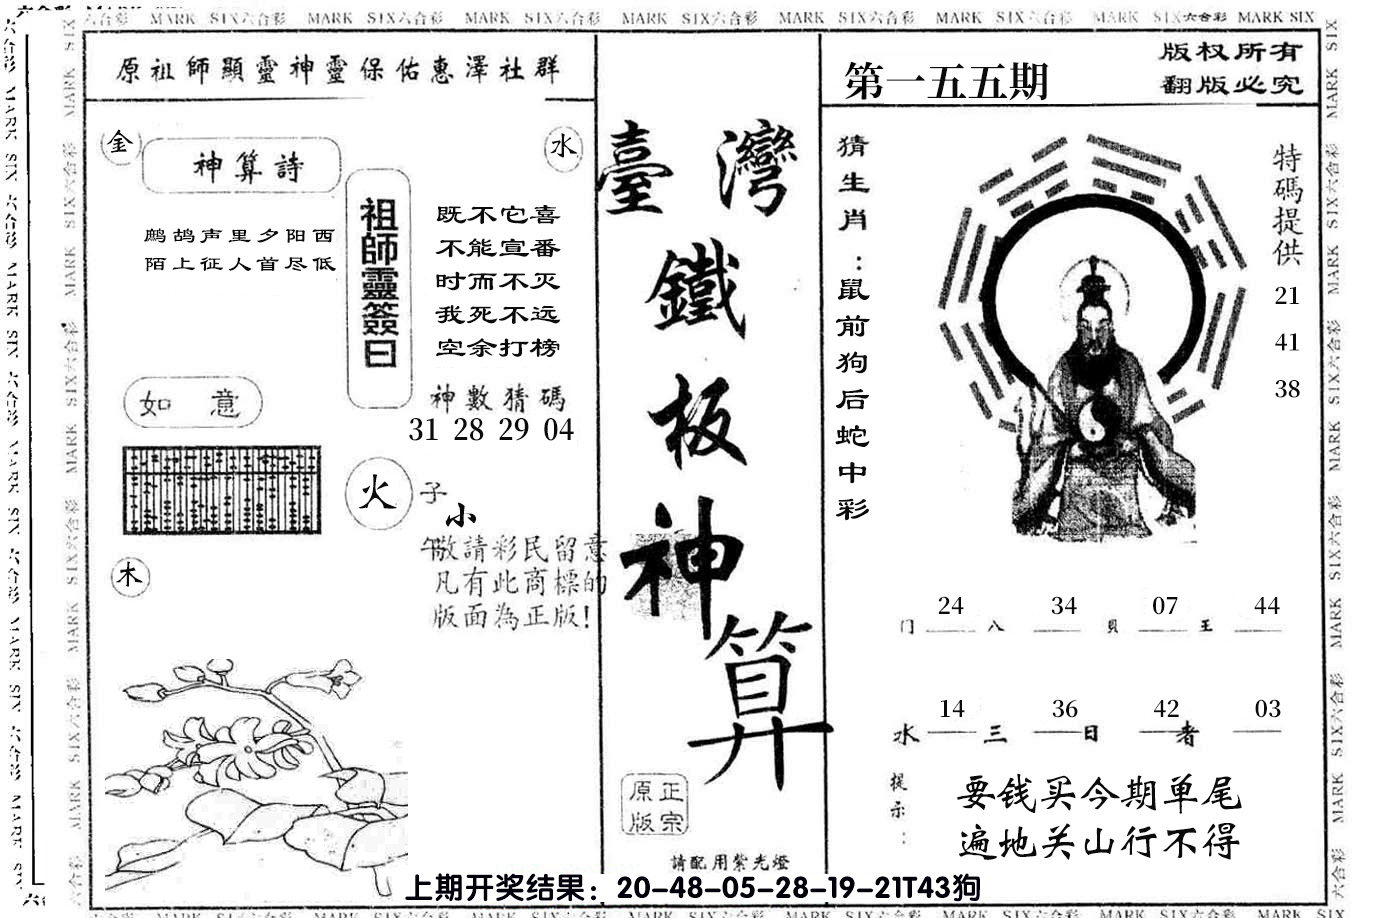 MARK SIX六合彩 MARK SIX六合彩 MARK SIX六合彩 MARK SIX六合彩 MARK SIX六合彩 MARK SIX六合彩 MARK SIX六合彩 MARK SIX
原祖師顯靈神靈保佑惠澤社群
金
神算詩
水
鹧鸪声里夕阳西
陌上征人首尽低
祖師靈簽曰
既不它喜
不能宣番
时而不灭
我死不远
空余打榜
神數猜碼
31 28 29 04
如 意
火
子
小
午
敬請彩民留意
凡有此商標的
版面為正版!
木
臺灣
鐵
板
神
算
原正
版宗
請配用紫光燈
第一五五期
版权所有
翻版必究
猜生肖:鼠前狗后蛇中彩
特碼提供
21
41
38
24 34 07 44
门 八 貝 王
14 36 42 03
水 三 日 者
提示:
要钱买今期单尾
遍地关山行不得
上期开奖结果：20-48-05-28-19-21T43狗